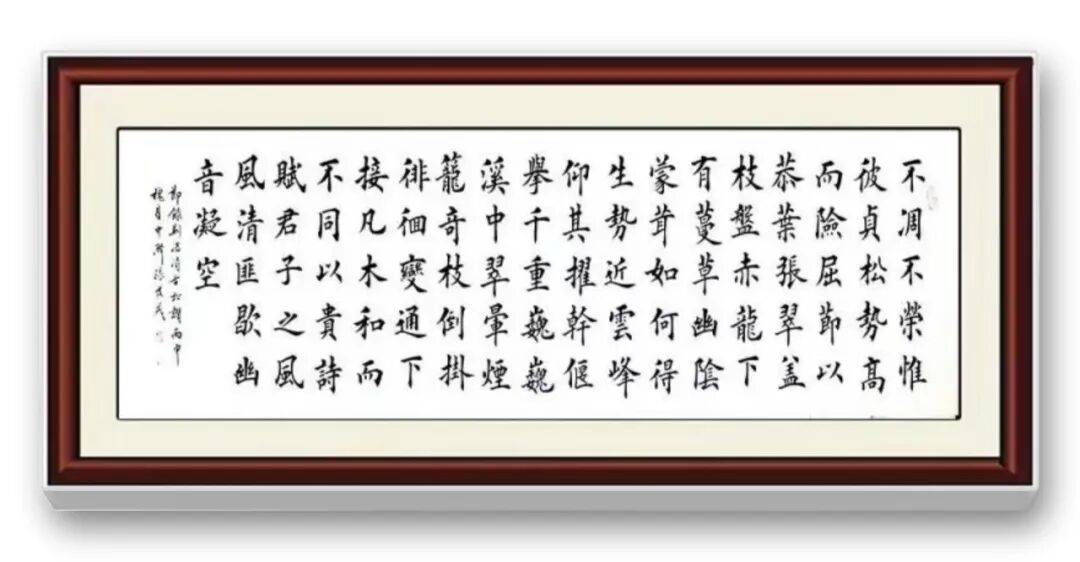 不凋不榮惟
彼貞松勢高
而險屈節以
恭葉張翠盖
枝盤赤龍下
有蔓草幽陰
蒙茸如何得
生勢近雲峰
仰其擢幹偃
擧千重巍巍
溪中翠暈煙
籠奇枝倒掛
徘徊變通下
接凡木和而
不同以貴詩
賦君子之風
風清匪歇幽
音凝空
節錄荆浩 古松贊丙申